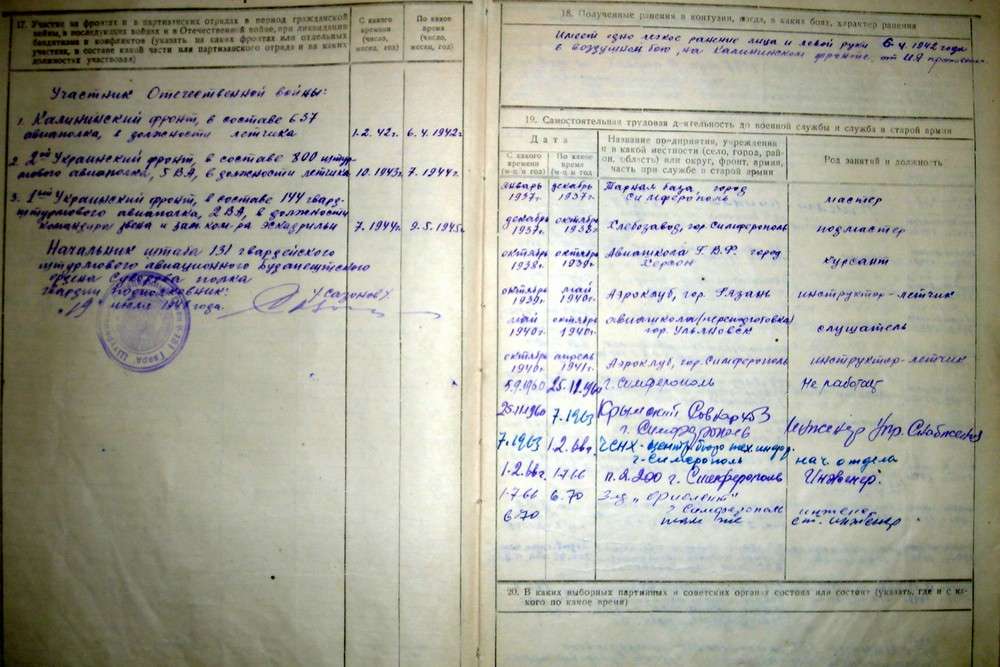 17. Участие на фронтах и в партизанских отрядах в период гражданской
войны, в последующих войнах и в Отечественной войне, при ликвидации
бандитизма и конфликтов (указать, на каких фронтах или отдельных
участках, в составе какой части или партизанского отряда и на каких
должностях участвовал)
С какого
времени
(число,
месяц, год)
По какое
время
(число,
месяц, год)
Участник Отечественной войны:
1. Калининский фронт, в составе 637
авиаполка, в должности летчика 1.2.42г. 6.4.1942г.
2. 2ой Украинский фронт, в составе 800 штур-
мового авиаполка, 5 ВА, в должности летчика 10.1943г. 7.1944г.
3. 1ый Украинский фронт, в составе 144 гвард.
штурмового авиаполка, 2 ВА, в должности
командира звена и зам. ком-ра эскадрильи 7.1944г. 9.5.1945г.
Начальник штаба 131 гвардейского
штурмового авиационного Будапештского
ордена Суворова полка
гвардии подполковник: /Сазонов/.
19 июля 1948 года.
18. Полученные ранения и контузии, когда, в каких боях, характер ранения
Имеет одно легкое ранение лица и левой руки 6.4.1942 года
в воздушном бою, на Калининском фронте, от ИА противника.
19. Самостоятельная трудовая деятельность до военной службы и служба в старой армии
Дата
С какого
времени
(м-ц и год)
По какое
время
(м-ц и год)
Название предприятия, учреждения
и в какой местности (село, город, рай-
он, область) или округ, фронт, армия,
часть при службе в старой армии
Род занятий и должность
январь 1937г. декабрь 1937г. Тарная база, город
Симферополь мастер
декабрь 1937г. октябрь 1938г. Хлебозавод, гор. Симферополь подмастер
октябрь 1938г. октябрь 1939г. Авиашкола Г.В.Ф. город
Херсон курсант
октябрь 1939г. май 1940г. Аэроклуб, гор. Рязань инструктор-летчик
май 1940г. октябрь 1940г. авиашкола/переподготовка/
гор. Ульяновск слушатель
октябрь 1940г. апрель 1941г. Аэроклуб, гор. Симферополь инструктор-летчик
5.9.1960 25.11.1960 г. Симферополь Не работал
25.11.1960 7.1963 Крымский Совнархоз
г. Симферополь Инженер Упр. Снабжения
7.1963 1.2.66г. ЧСНХ - Центр. бюро тех. инфор.
г. Симферополь нач. отдела
1.2.66г. 1.7.66 п.я. 200 г. Симферополь Инженер.
1.7.66 6.70 З-д
г. Симферополь инжене
6.70 там же ст. инженер
20. В каких выборных партийных и советских органах состоял или состоит (указать, где и с ка-
кого по какое время)